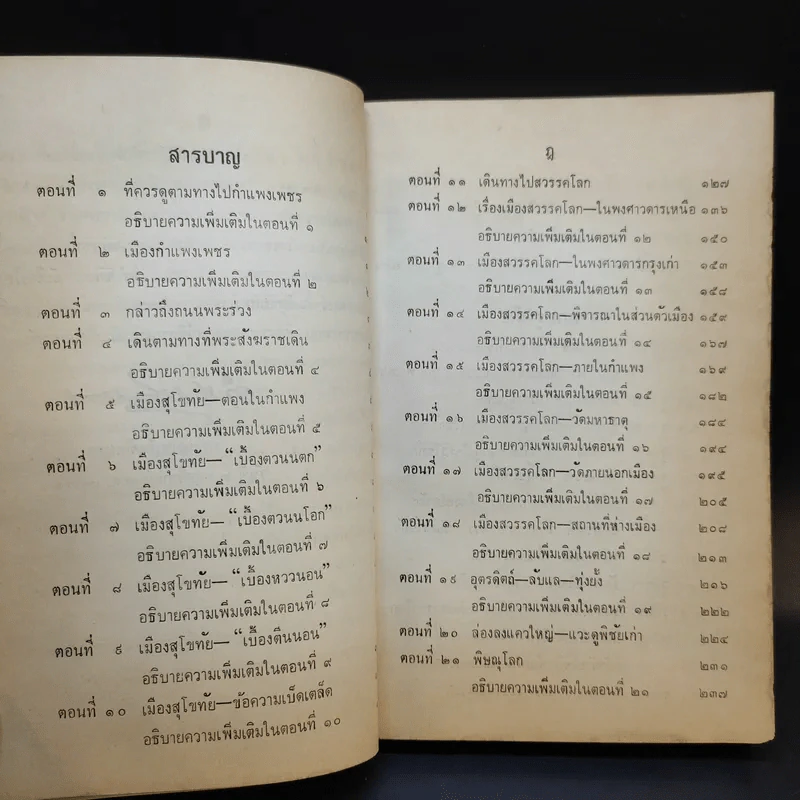 สารบาญ
ตอนที่ ๑ ที่ควรดูตามทางไปกำแพงเพชร
อธิบายความเพิ่มเติมในตอนที่ ๑
ตอนที่ ๒ เมืองกำแพงเพชร
อธิบายความเพิ่มเติมในตอนที่ ๒
ตอนที่ ๓ กล่าวถึงถนนพระร่วง
ตอนที่ ๔ เดินตามทางที่พระสังฆราชเดิน
อธิบายความเพิ่มเติมในตอนที่ ๔
ตอนที่ ๕ เมืองสุโขทัย—ตอนในกำแพง
อธิบายความเพิ่มเติมในตอนที่ ๕
ตอนที่ ๖ เมืองสุโขทัย—“เบื้องตวนนตก”
อธิบายความเพิ่มเติมในตอนที่ ๖
ตอนที่ ๗ เมืองสุโขทัย—“เบื้องตวนนโอก”
อธิบายความเพิ่มเติมในตอนที่ ๗
ตอนที่ ๘ เมืองสุโขทัย—“เบื้องหววนอน”
อธิบายความเพิ่มเติมในตอนที่ ๘
ตอนที่ ๙ เมืองสุโขทัย—“เบื้องตีนนอน”
อธิบายความเพิ่มเติมในตอนที่ ๙
ตอนที่ ๑๐ เมืองสุโขทัย—ข้อความเบ็ดเตล็ด
อธิบายความเพิ่มเติมในตอนที่ ๑๐
ฎ
ตอนที่ ๑๑ เดินทางไปสวรรคโลก ๑๒๗
ตอนที่ ๑๒ เรื่องเมืองสวรรคโลก—ในพงศาวดารเหนือ ๑๓๖
อธิบายความเพิ่มเติมในตอนที่ ๑๒ ๑๕๐
ตอนที่ ๑๓ เมืองสวรรคโลก—ในพงศาวดารกรุงเก่า ๑๕๓
อธิบายความเพิ่มเติมในตอนที่ ๑๓ ๑๕๘
ตอนที่ ๑๔ เมืองสวรรคโลก—พิจารณาในส่วนตัวเมือง ๑๕๙
อธิบายความเพิ่มเติมในตอนที่ ๑๔ ๑๖๗
ตอนที่ ๑๕ เมืองสวรรคโลก—ภายในกำแพง ๑๖๙
อธิบายความเพิ่มเติมในตอนที่ ๑๕ ๑๘๒
ตอนที่ ๑๖ เมืองสวรรคโลก—วัดมหาธาตุ ๑๘๔
อธิบายความเพิ่มเติมในตอนที่ ๑๖ ๑๙๔
ตอนที่ ๑๗ เมืองสวรรคโลก—วัดภายนอกเมือง ๑๙๕
อธิบายความเพิ่มเติมในตอนที่ ๑๗ ๒๐๕
ตอนที่ ๑๘ เมืองสวรรคโลก—สถานที่ห่างเมือง ๒๐๘
อธิบายความเพิ่มเติมในตอนที่ ๑๘ ๒๑๓
ตอนที่ ๑๙ อุตรดิตถ์—ลับแล—ทุ่งยั้ง ๒๑๖
อธิบายความเพิ่มเติมในตอนที่ ๑๙ ๒๒๒
ตอนที่ ๒๐ ล่องลงแควใหญ่—แวะดูพิชัยเก่า ๒๒๔
ตอนที่ ๒๑ พิษณุโลก ๒๓๑
อธิบายความเพิ่มเติมในตอนที่ ๒๑ ๒๓๗